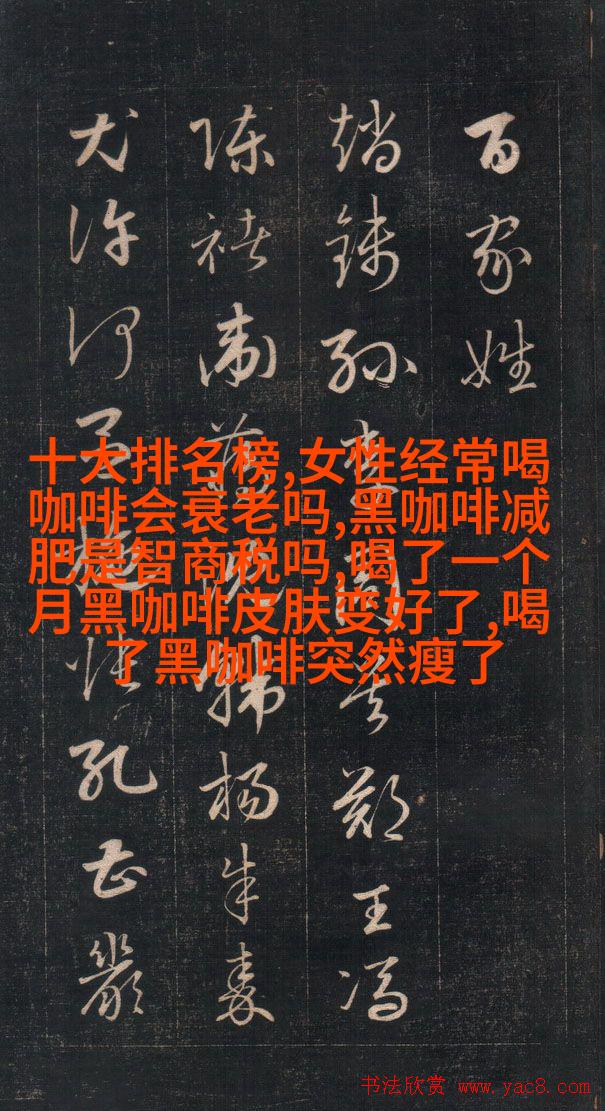 百家姓
趙錢孫李周吳鄭王馮
陳褚衛蔣沈韓楊朱秦
尤許何吕施張孔曹嚴
十大排名榜,女性经常喝
咖啡会衰老吗,黑咖啡减
肥是智商税吗,喝了一个
月黑咖啡皮肤变好了,喝
了黑咖啡突然瘦了
书法欣赏 www.yac8.com